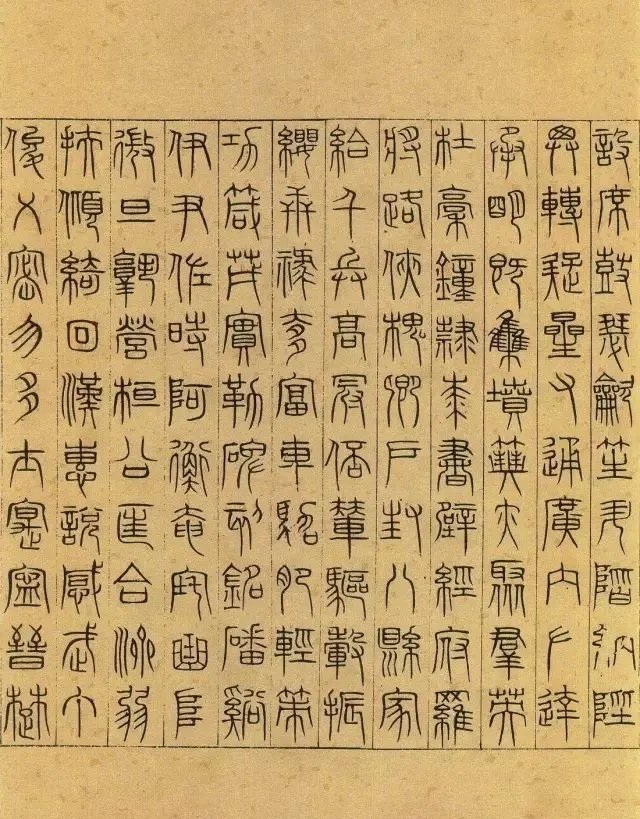 設席鼓瑟龡笙升階納陛
弁轉疑星右通廣內左達
承明既集墳典亦聚羣英
杜稾鐘隸桼書壁經府羅
將路俠槐卿戶封八縣家
給千兵高冠陪輦驅轂振
纓世祿侈富車駕肥輕策
功茂實勒碑刻銘磻谿
伊尹佐時阿衡奄宅曲阜
微旦孰營桓公匡合濟弱
扶傾綺回漢惠說感武丁
俊乂密勿多士寔寧晉楚